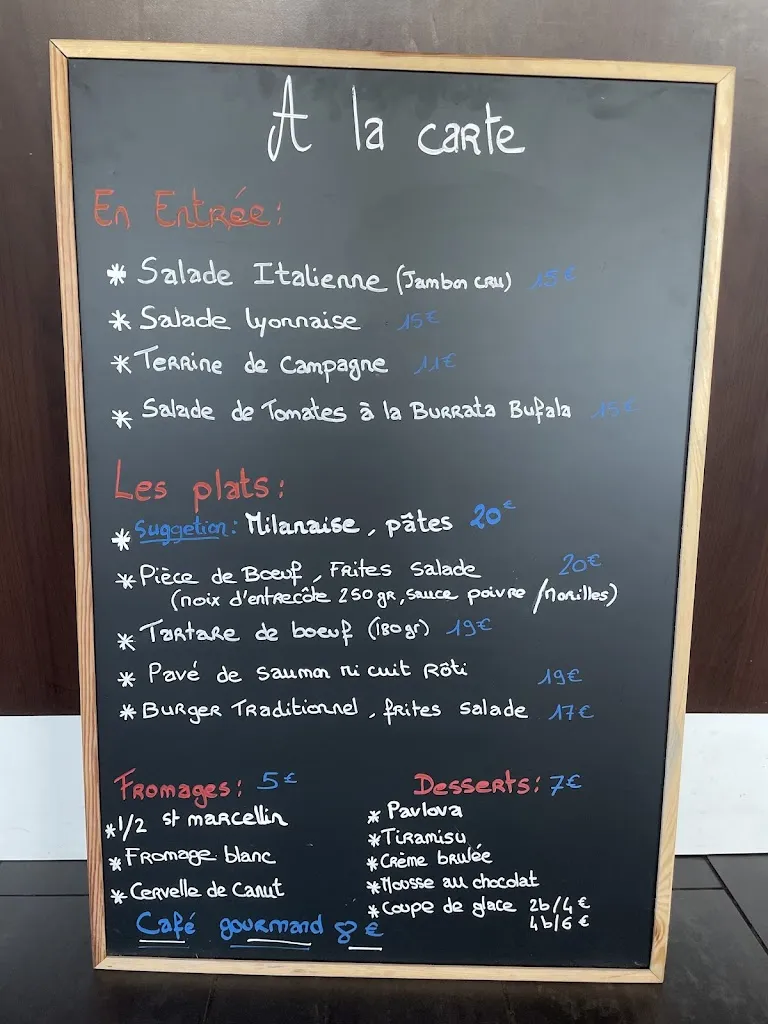 A la carte
En Entrée:
* Salade Italienne (Jambon CRU) 15€
* Salade Lyonnaise 15€
* Terrine de Campagne 11€
* Salade de Tomates à la Burrata Bufala 15€
Les plats:
* Suggetion: Milanaise, pâtes 20€
* Pièce de Boeuf, Frites Salade 20€
(noix d'entrecôte 250gr, sauce poivre /Morilles)
* Tartare de boeuf (180gr) 19€
* Pavé de saumon mi cuit Rôti 19€
* Burger Traditionnel, frites Salade 17€
Fromages: 5€
* 1/2 St marcellin
* Fromage blanc
* Cervelle de Canut
Desserts: 7€
* Pavlova
* Tiramisu
* Crème brulée
* Mousse au chocolat
* Coupe de glace 2b/4€
4b/6€
Café gourmand 8€